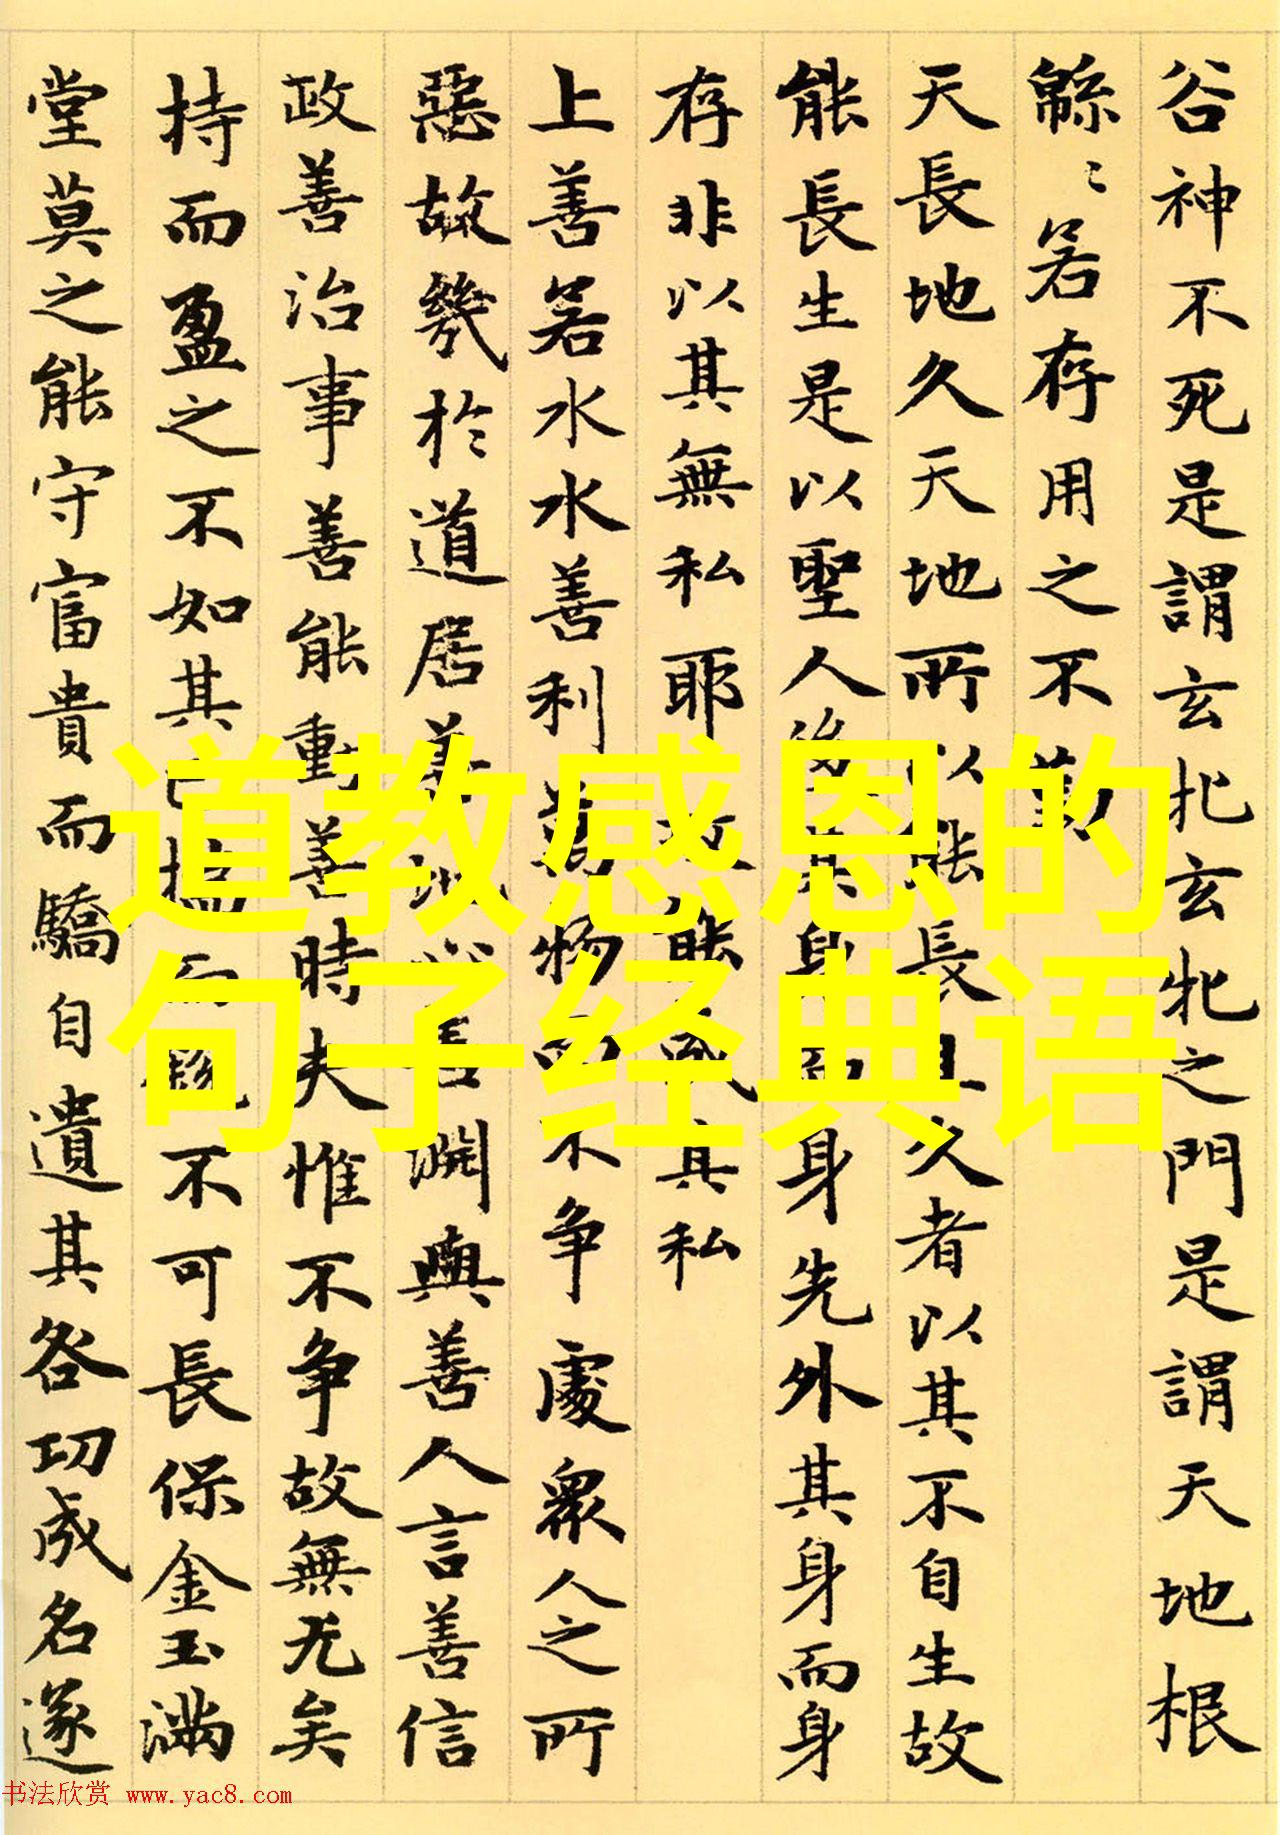 谷神不死是謂玄牝玄牝之門是謂天地根
緜〻若存用之不勤
天長地久天地所以能長且久者以其不自生故
能長生是以聖人後其身而身先外其身而身
存非以其無私耶故能成其私
上善若水水善利萬物而不争處衆人之所
惡故幾於道居善地心善淵與善人言善信
政善治事善能動善時夫惟不争故無尤矣
持而盈之不如其已揣而銳不可長保金玉滿
堂莫之能守富貴而驕自遺其咎功成名遂
道教感恩的
句子经典语
书法欣赏 www.yac8.com